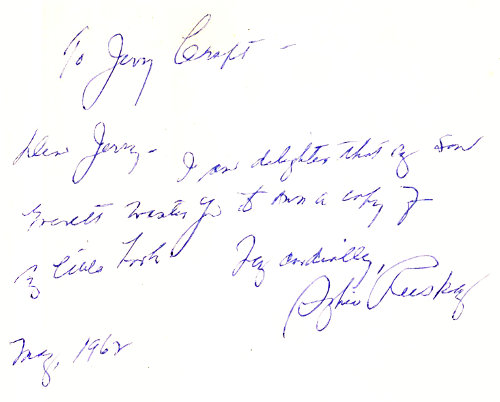 To Jerry Craft -
Dear Jerry - I am delighted that my son
Everett wanted you to own a copy of
my little book.
Very cordially,
May, 1962